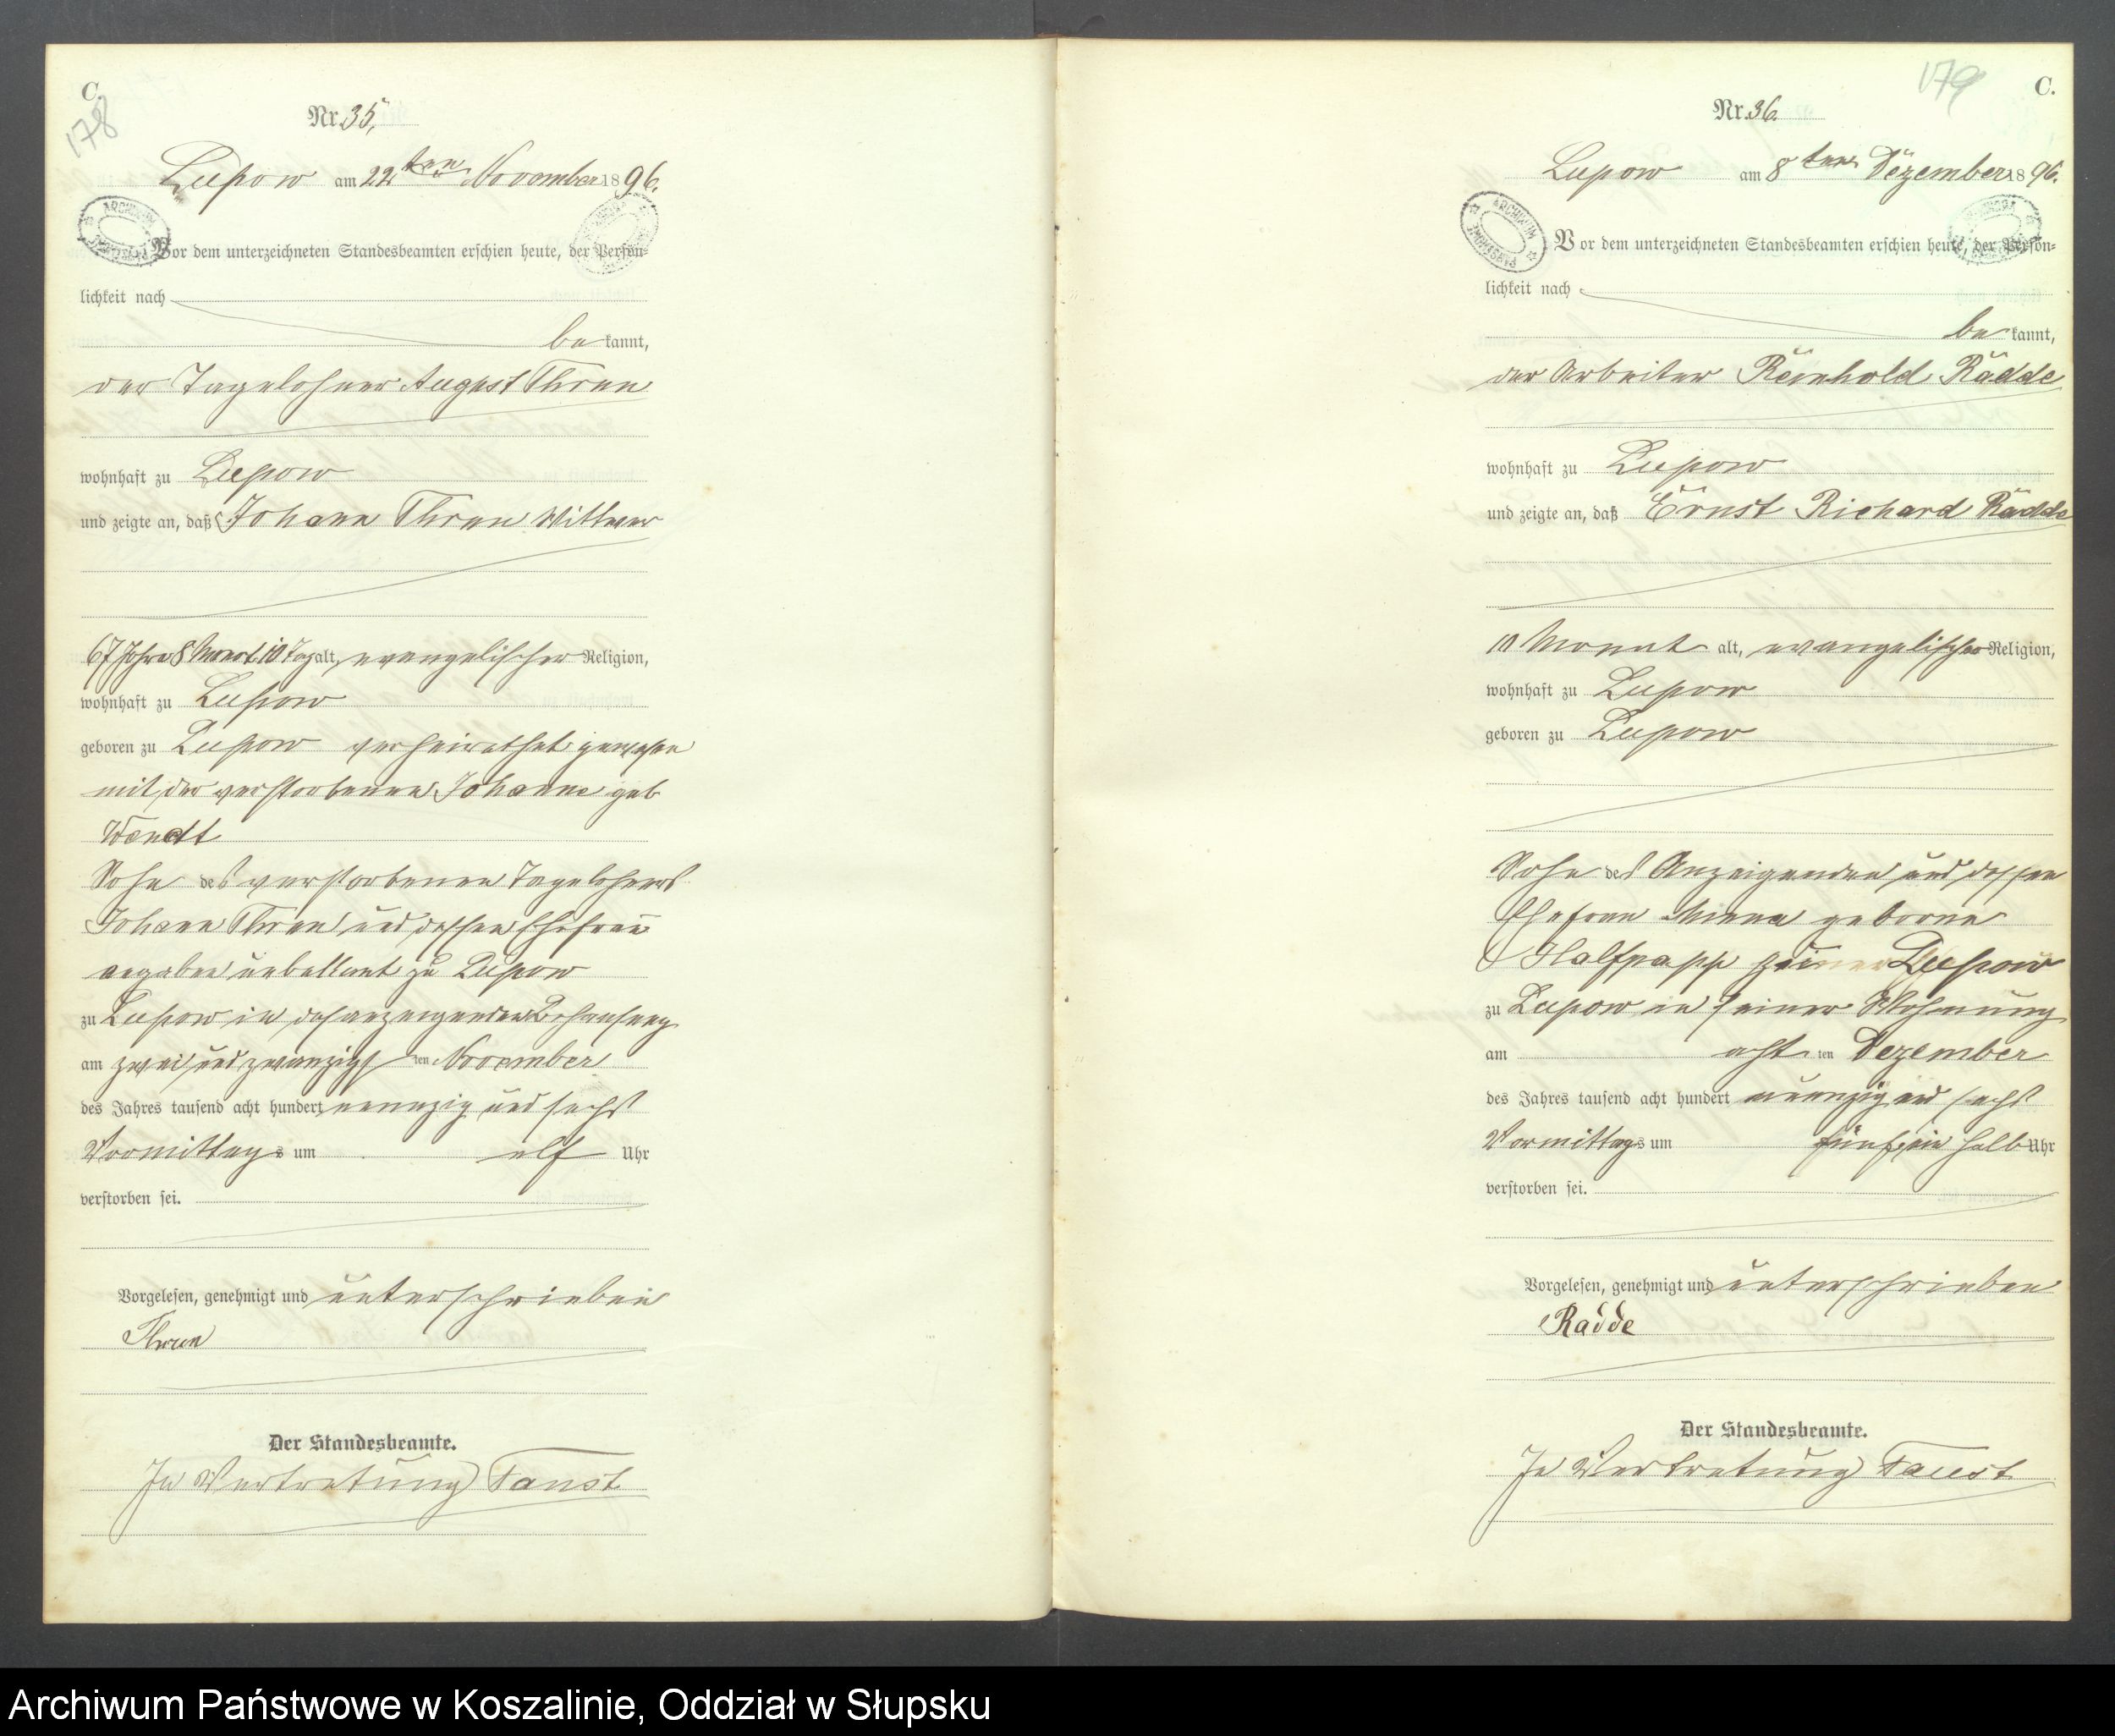 C.
178
Nr. 35,
Lupow am 22ten November 1896.
Vor dem unterzeichneten Standesbeamten erschien heute, der Persön-
lichkeit nach
bekannt,
der Tagelohner August Thrun
wohnhaft zu Lupow
und zeigte an, daß Johann Thrun Wittwer
67 Jahre 8 Monat 10 Tag alt, evangelischer Religion,
wohnhaft zu Lupow
geboren zu Lupow verheirathet gewesen
mit der verstorbenen Johanne geb
Wendt
Sohn des verstorbenen Tagelohners
Johann Thrun und dessen Ehefrau
angaben unbekannt zu Lupow
zu Lupow in des anzeigenden Behausung
am zwei und zwanzigsten November
des Jahres tausend acht hundert neunzig und sechs
Vormittags um elf Uhr
verstorben sei.
Vorgelesen, genehmigt und unterschrieben
Thrun
Der Standesbeamte.
In Vertretung Faust
179
C.
Nr. 36.
Lupow am 8ten Dezember 1896.
Vor dem unterzeichneten Standesbeamten erschien heute, der Persön-
lichkeit nach
bekannt,
der Arbeiter Reinhold Radde
wohnhaft zu Lupow
und zeigte an, daß Ernst Richard Radde
10 Monat alt, evangelischer Religion,
wohnhaft zu Lupow
geboren zu Lupow
Sohn des Anzeigenden und dessen
Ehefrau Minna geborne
Halfpapp zu Lupow
zu Lupow in seiner Wohnung
am achten Dezember
des Jahres tausend acht hundert neunzig und sechs
Vormittags um fünf ein halb Uhr
verstorben sei.
Vorgelesen, genehmigt und unterschrieben
Radde
Der Standesbeamte.
In Vertretung Faust
Archiwum Państwowe w Koszalinie, Oddział w Słupsku